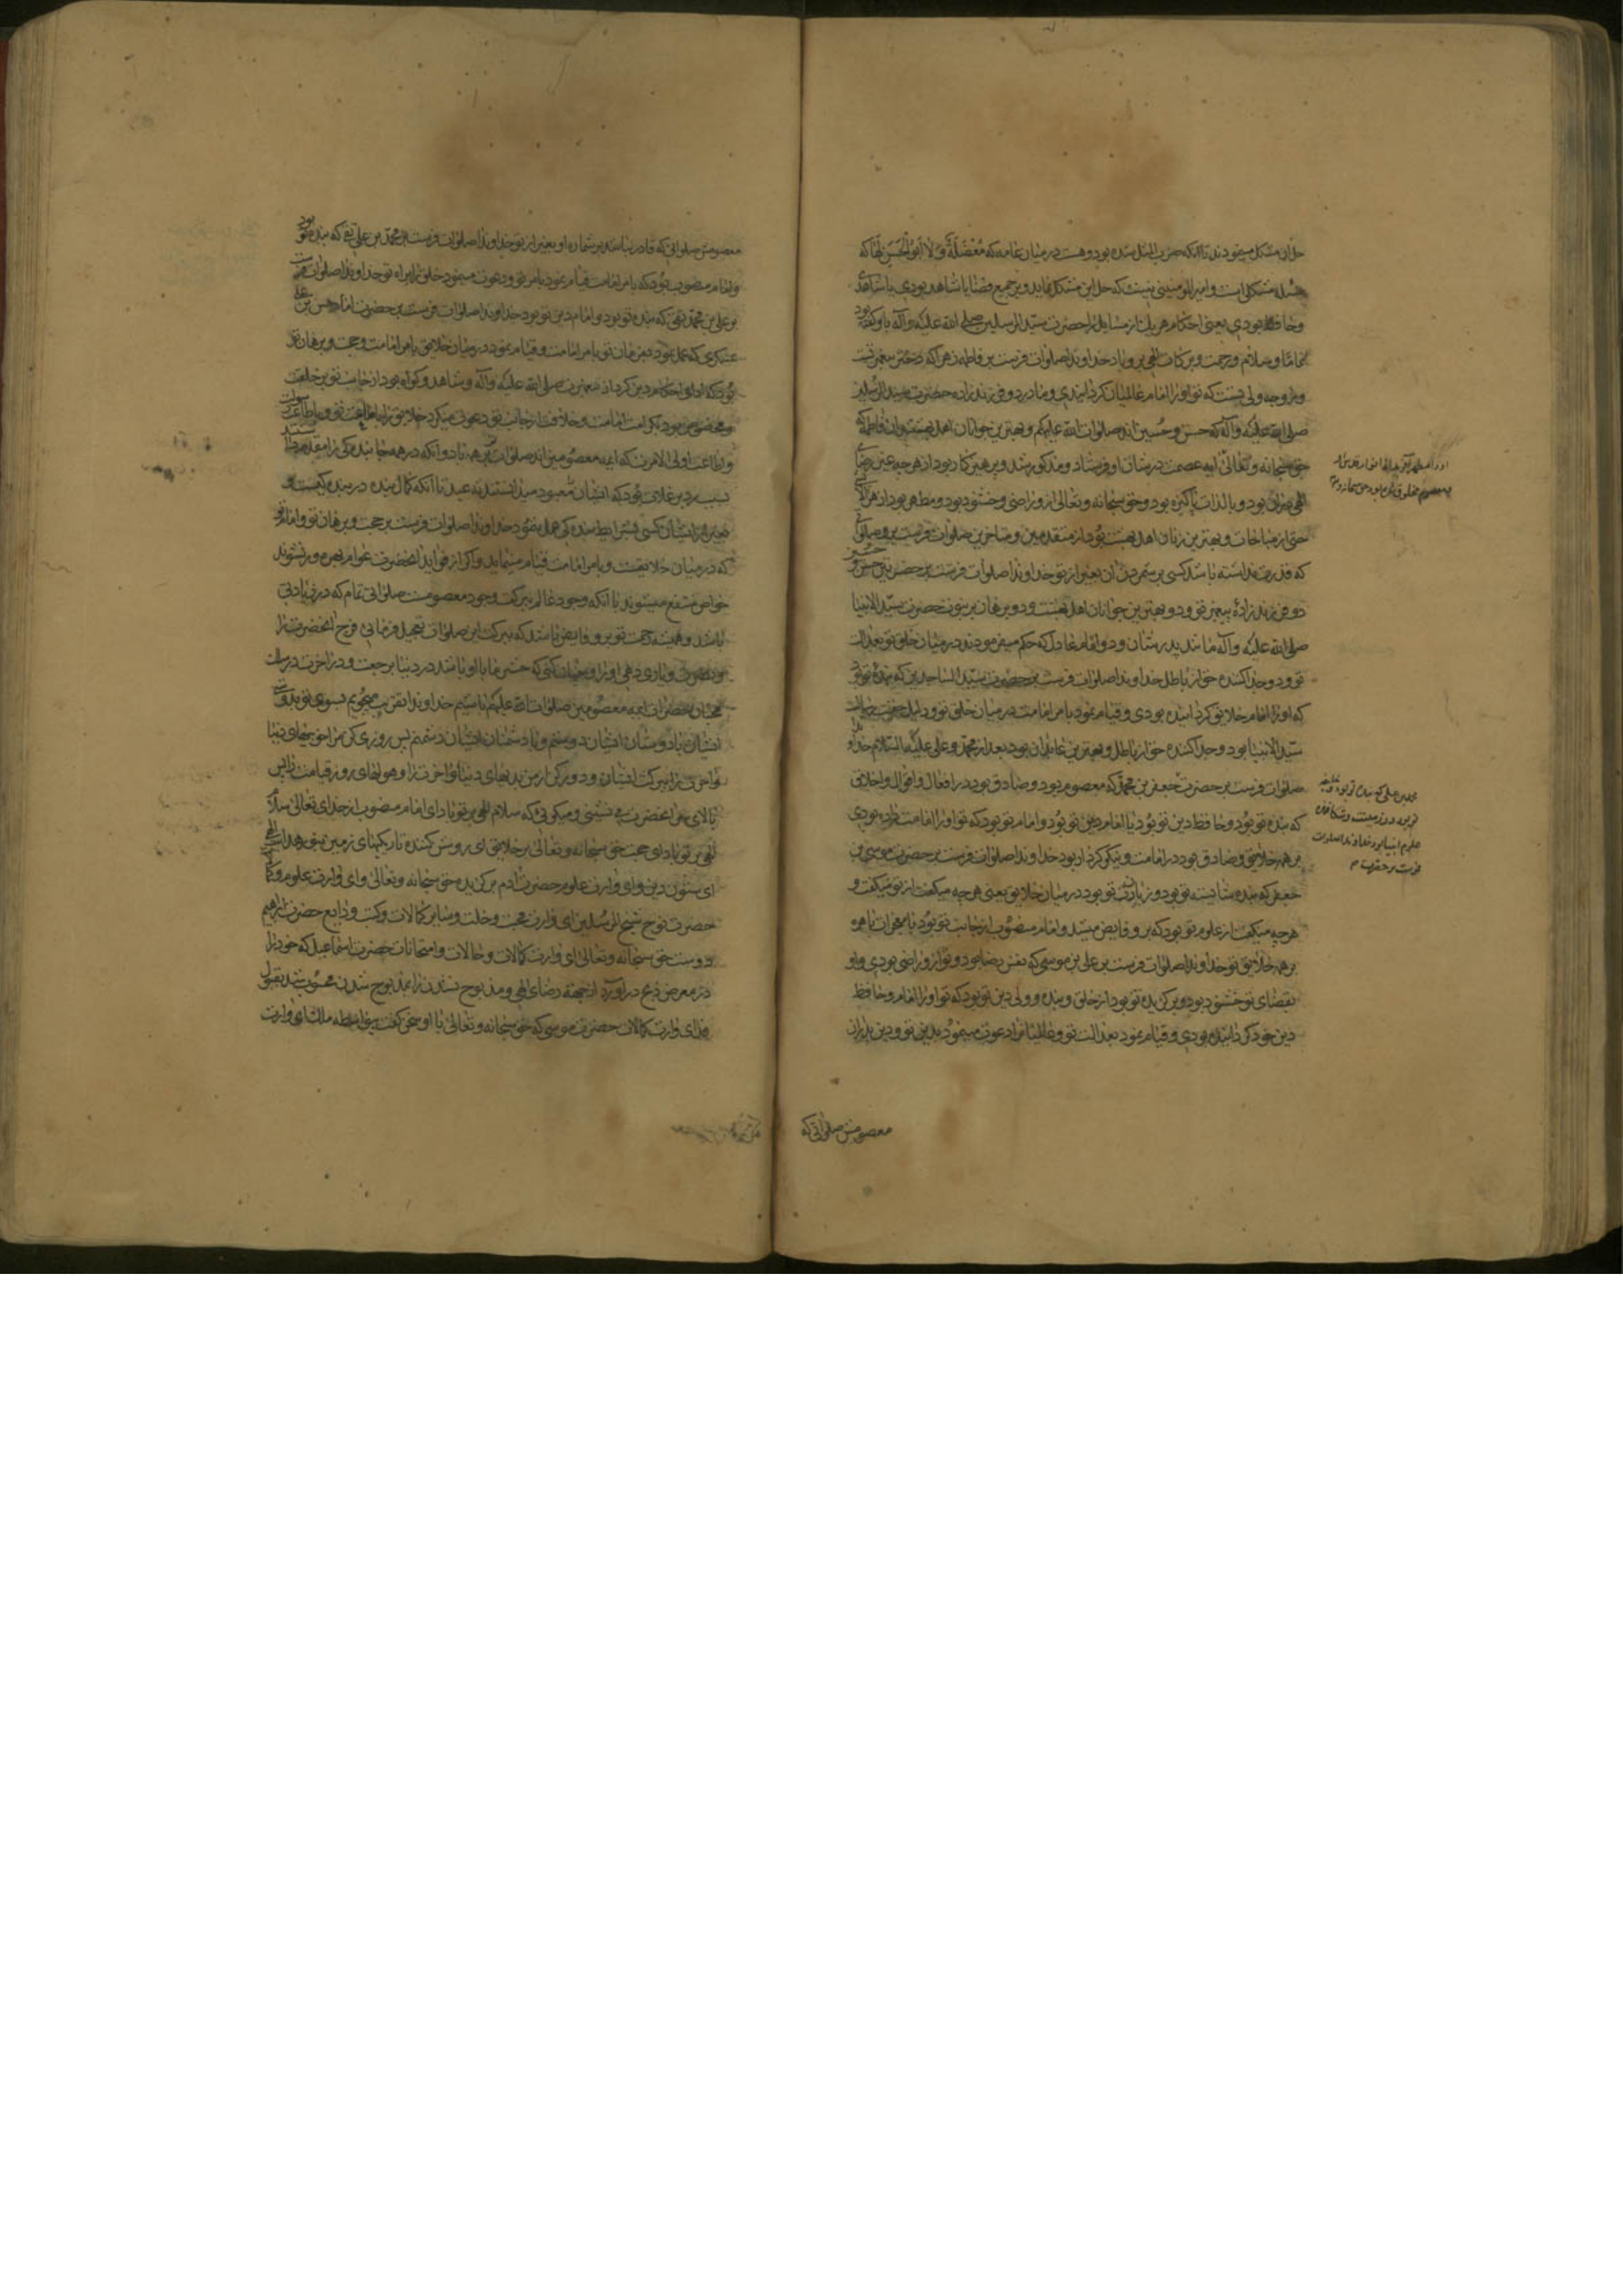 حل آن مشکل میفرمودند تا آنکه ضرب المثل شده بود و هست در میان عامه که مُعْضَلَةٌ وَ لَا اَبُو الْحَسَنِ لَهَا که
مسئله مشکلی است و امیر المؤمنینی نیست که حل این مشکل نماید و بر جمیع قضایا شاهد بودی یا شاهد
و حافظ بودی یعنی احکام هر یک از مسایل را حضرت سید المرسلین صلی الله علیه و آله باو گفته بود
تماما و سلام و رحمت و برکات الهی برو باد خداوندا صلوات فرست بر فاطمه زهرا که دختر پیغمبر تست
و زوجه ولی تست که تو او را امام عالمیان گردانیدی و مادر دو فرزندزاده حضرت سید المرسلین
صلی الله علیه و آله که حسن و حسین اند صلوات الله علیهم و بهترین جوانان اهل بهشت‌اند فاطمه که
حق سبحانه و تعالی آیه عصمت در شان او فرستاد و مذکور شد و پرهیزکار بود از هر چه غیر رضای
الهی بود و بالذات پاکیزه بود و حق سبحانه و تعالی ازو راضی و خشنود بود و مطهر بود از هر
حتی از مباحات و بهترین زنان اهل بهشت بود از متقدمین و متاخرین صلوات فرست برو صلواتی
که قدرت نداشته باشد کسی بر شمردن آن بغیر از تو خداوندا صلوات فرست بر حضرتین حسن و حسین
دو فرزندزادهٔ پیغمبر تو و دو بهترین جوانان اهل بهشت و دو برهان بر نبوت حضرت سید الانبیا
صلی الله علیه و آله مانند پدرشان و دو امام عادل که حکم میفرمودند در میان خلق تو بعدالت
تو و دو جدا کننده حق از باطل خداوندا صلوات فرست بر حضرت سید الساجدین که بندهٔ تو بود
که او را امام خلایق گردانیده بودی و قیام نمود بامر امامت در میان خلق تو و دلیل حقیت رسالت
سید الانبیا بود و جدا کننده حق از باطل و بهترین عابدان بود بعد از محمد و علی علیهما السلام خداوندا
صلوات فرست بر حضرت جعفر بن محمد که معصوم بود و صادق بود در افعال و اقوال و اخلاق
که بنده تو بود و حافظ دین تو بود یا امام دین تو بود و امام تو بود که تو او را امامت داده بودی
بر همه خلایق و صادق بود در امامت و نیکو کردار بود خداوندا صلوات فرست بر حضرت موسی بن
جعفر که بنده شایسته تو بود و زبان تو بود در میان خلایق یعنی هر چه میگفت از تو میگفت و
هر چه میگفت از علوم تو بود که برو فایض میشد و امام منصوب از جانب تو بود با معجزات باهره
بر همه خلایق تو خداوندا صلوات فرست بر علی بن موسی که نفس رضا بود و تو ازو راضی بودی و او
بقضای تو خشنود بود و برگزیده تو بود از خلق و بنده و ولی دین تو بود که تو او را امام و حافظ
دین خود گردانیده بودی و قیام نمود بعدالت تو و عالمیان را دعوت مینمود بدین تو و دین پدران
معصومش صلواتی که
محمد بن علی که بنده تو بود و خلیفه
تو بود در زمینت و شکافنده
علوم انبیا بود خداوندا صلوات
فرست بر حضرت
معصومش صلواتی که قادر نباشد بر شماره او بغیر از تو خداوندا صلوات فرست بر محمد بن علی تقی که بنده تو بود
و امام منصوب بود که بامر امامت قیام نمود بامر تو و دعوت مینمود خلق را براه تو خداوندا صلوات فرست
بر علی بن محمد نقی که بنده تو بود و امام دین تو بود خداوندا صلوات فرست بر حضرت امام حسن بن علی
عسکری که عمل نمود بفرمان تو بامر امامت و قیام نمود در میان خلایق بامر امامت و حجت و برهان تو
بود که ادای احکام دین کرد از پیغمبرت صلی الله علیه و آله و شاهد و گواه بود از جانب تو بر خلقت
و مخصوص بود بکرامت امامت و خلافت از جانب تو دعوت میکرد خلایق را باطاعت تو و باطاعت رسولت
و اطاعت اولی الامرت که ایمه معصومین اند صلوات بر همه باد و آنکه در همه جا بندگی را مقدم
سبب رد بر غلات بود که ایشان معبود میدانستند نه عبد تا آنکه کمال بنده در بندگیست و
بغیر از ایشان کسی شرایط بندگی بعمل نمود خداوندا صلوات فرست بر حجت و برهان تو و امام تو
که در میان خلایقست و بامر امامت قیام مینماید و اگر از فواید آنحضرت عوام بهره‌ور نشوند
خواص منتفع میشوند با آنکه وجود عالم ببرکت وجود معصومست صلواتی تمام که در زیادتی
باشد و همیشه رحمت تو برو فایض باشد که ببرکت این صلوات تعجیل فرمائی فرج آنحضرت را
و نصرت و یاری دهی او را و چنان کنی که حشر ما با او باشد در دنیا برجعت و در آخرت در
محبان حضرات ایمه معصومین صلوات الله علیهم باشیم خداوندا تقرب میجویم بسوی تو بدوستی
ایشان با دوستان ایشان دوستم و با دشمنان ایشان دشمنم پس روزی کن مرا خوبیهای دنیا
و آخرت را ببرکت ایشان و دور کن از من بدیهای دنیا و آخرت را و هولهای روز قیامت را پس
بالای سر آنحضرت می نشینی و میگوئی که سلام الهی بر تو باد ای امام منصوب از خدای تعالی سلام
الهی بر تو باد ای حجت حق سبحانه و تعالی بر خلایق ای روشن کننده تاریکیهای زمین بنور هدایت الهی
ای ستون دین و ای وارث علوم حضرت آدم برگزیده حق سبحانه و تعالی و ای وارث علوم و کمالات
حضرت نوح شیخ المرسلین ای وارث محبت و خلت و سایر کمالات و کتب و ودایع حضرت ابراهیم
دوست حق سبحانه و تعالی ای وارث کمالات و حالات و امتحانات حضرت اسماعیل که خود را
در معرض ذبح درآورد از جهة رضای الهی و مذبوح نشدن را بمذبوح شدن محسوب شد بقبول
و ای وارث کمالات حضرت موسی که حق سبحانه و تعالی با او سخن گفت بی واسطه ملک ای وارث